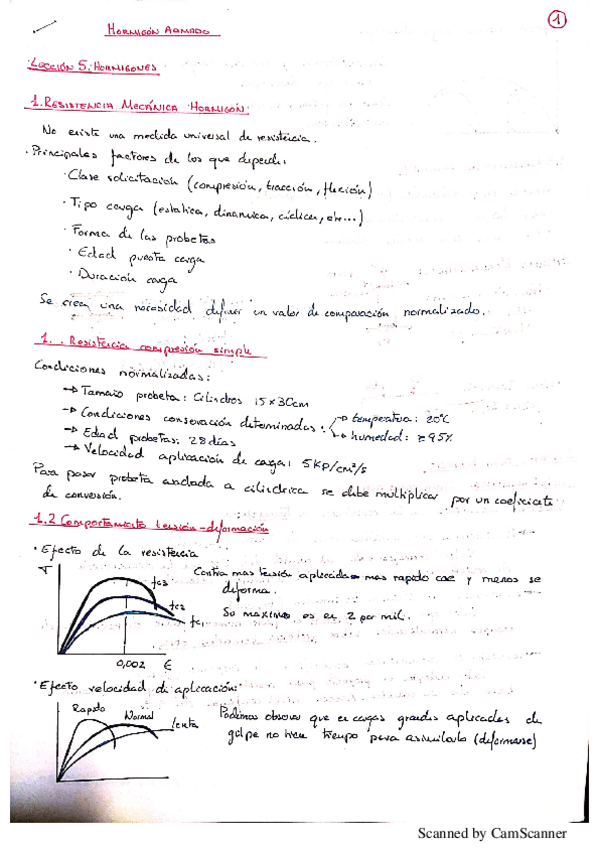 1
HORMIGÓN ARMADO
LECCIÓN 5: HORMIGONES
1. RESISTENCIA MECÁNICA HORMIGÓN.
No existe una medida universal de resistencia.
· Principales factores de los que depende:
· Clase solicitación (compresión, tracción, flexión)
· Tipo carga (estatica, dinamica, cíclica, etc...)
· Forma de las probetas
· Edad puesta carga
· Duración carga
Se crea una necesidad definir un valor de comparación normalizado.
1. . Resistencia compresión simple
Condiciones normalizadas:
→ Tamaño probeta: Cilindros 15x30cm
→ Condiciones conservación determinadas: → temperatura: 20°C
→ humedad: ≥95%
→ Edad probetas: 28 días
→ Velocidad aplicación de carga: 5 KP/cm²/s
Para pasar probeta a cilíndrica se debe múltiplicar por un coeficiente
de conversión.
1.2 Comportamiento tensión-deformación
· Efecto de la resistencia
Contra mas tensión aplicada mas rapido cae y menos se
deforma.
So maximo es en 2 por mil.
σ fc3 fc2 fc1
0,002 ε
· Efecto velocidad de aplicación:
Rapido Normal lenta
Podemos observar que en cargas grandes aplicadas de
golpe no tien tiempo para asimilarlo (deformarse)
Scanned by CamScanner